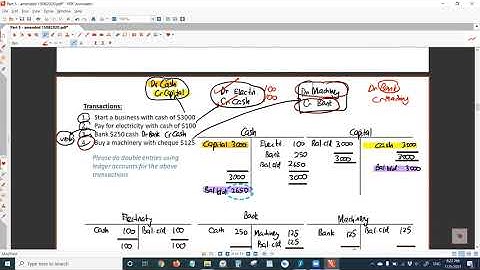 Part 5 - amended 15082020.pdf
Dr Cash
Cr Capital
Dr Electri.
Cr Cash
100
100
Dr Machinery
Cr Bank
Dr Bank
Cr Machinery
Transactions:
1 Start a business with cash of $3000
2 Pay for electricity with cash of $100
3 Bank $250 cash Dr Bank Cr Cash
4 Buy a machinery with cheque $125
Please do double entries using
ledger accounts for the above
transactions
Cash
Capital 3000
Electri 100
Bank 250
Bal c/d 2650
3000
3000
Bal b/d 2650
Capital
Bal c/d 3000
Cash 3000
3000
3000
Bal b/d 3000
Electricity
Cash 100
Bal c/d 100
100
100
Bank
Cash 250
Machinery 125
Bal c/d 125
Machinery
Bank 125
Bal c/d 125
ENG